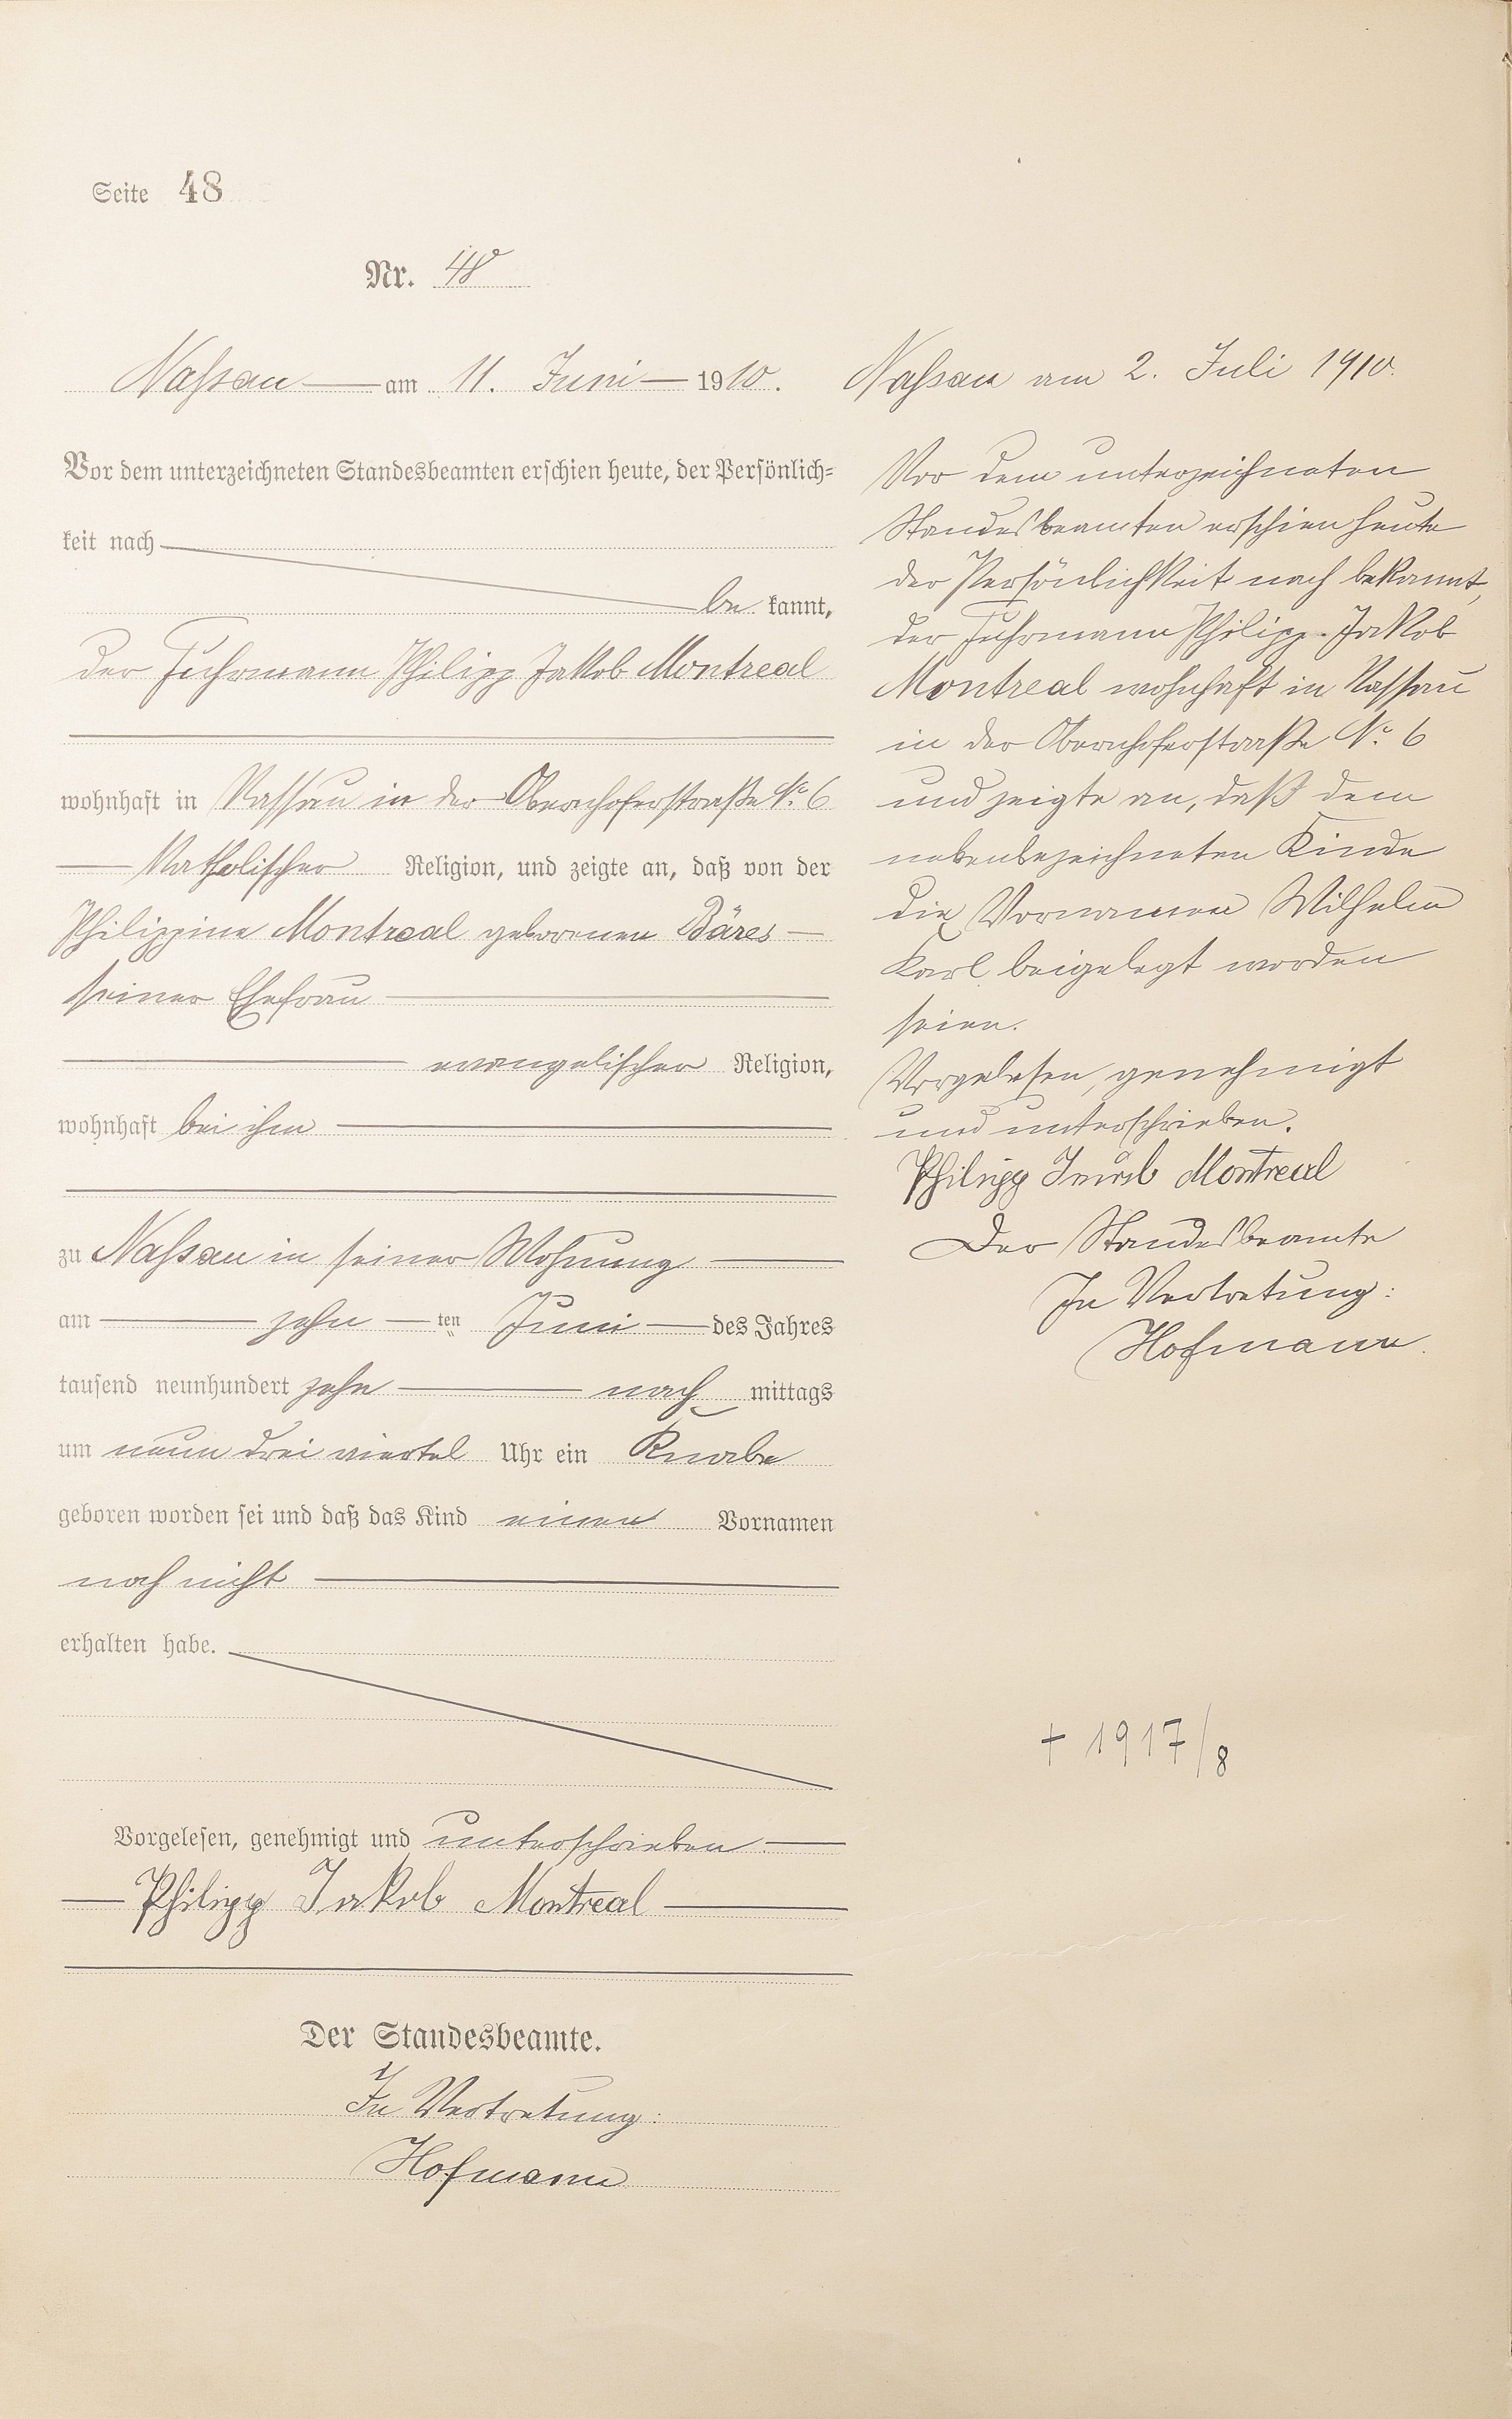 Seite 48
Nr. 48
Nassau am 11. Juni 1910.
Vor dem unterzeichneten Standesbeamten erschien heute, der Persönlich=
keit nach
be kannt,
der Fuhrmann Philipp Jakob Montreal
wohnhaft in Nassau in der Obernhoferstraße No. 6
katholischer Religion, und zeigte an, daß von der
Philippine Montreal geborenen Bäres
seiner Ehefrau
evangelischer Religion,
wohnhaft bei ihm
zu Nassau in seiner Wohnung
am zehn ten Juni des Jahres
tausend neunhundert zehn nach mittags
um neun drei viertel Uhr ein Knabe
geboren worden sei und daß das Kind einen Vornamen
noch nicht
erhalten habe.
Vorgelesen, genehmigt und unterschrieben
Philipp Jakob Montreal
Der Standesbeamte.
In Vertretung:
Hofmann
Nassau am 2. Juli 1910.
Vor dem unterzeichneten
Standesbeamten erschien heute
der Persönlichkeit nach bekannt,
der Fuhrmann Philipp Jakob
Montreal wohnhaft in Nassau
in der Obernhoferstraße No. 6
und zeigte an, daß dem
nebenbezeichneten Kinde
die Vornamen Wilhelm
Karl beigelegt worden
seien.
Vorgelesen, genehmigt
und unterschrieben.
Philipp Jakob Montreal
Der Standesbeamte
In Vertretung:
Hofmann.
+ 1917/8